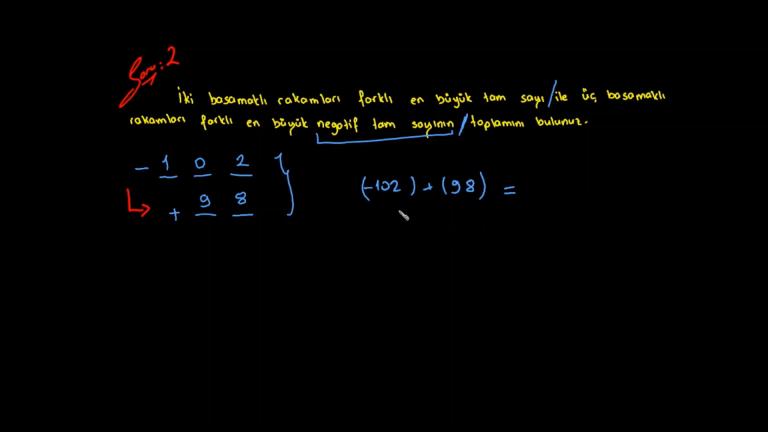 Soru: 2
İki basamaklı rakamları farklı en büyük tam sayı / ile üç basamaklı
rakamları farklı en büyük negatif tam sayının / toplamını bulunuz.
- 1 0 2
+ 9 8
(-102) + (98) =